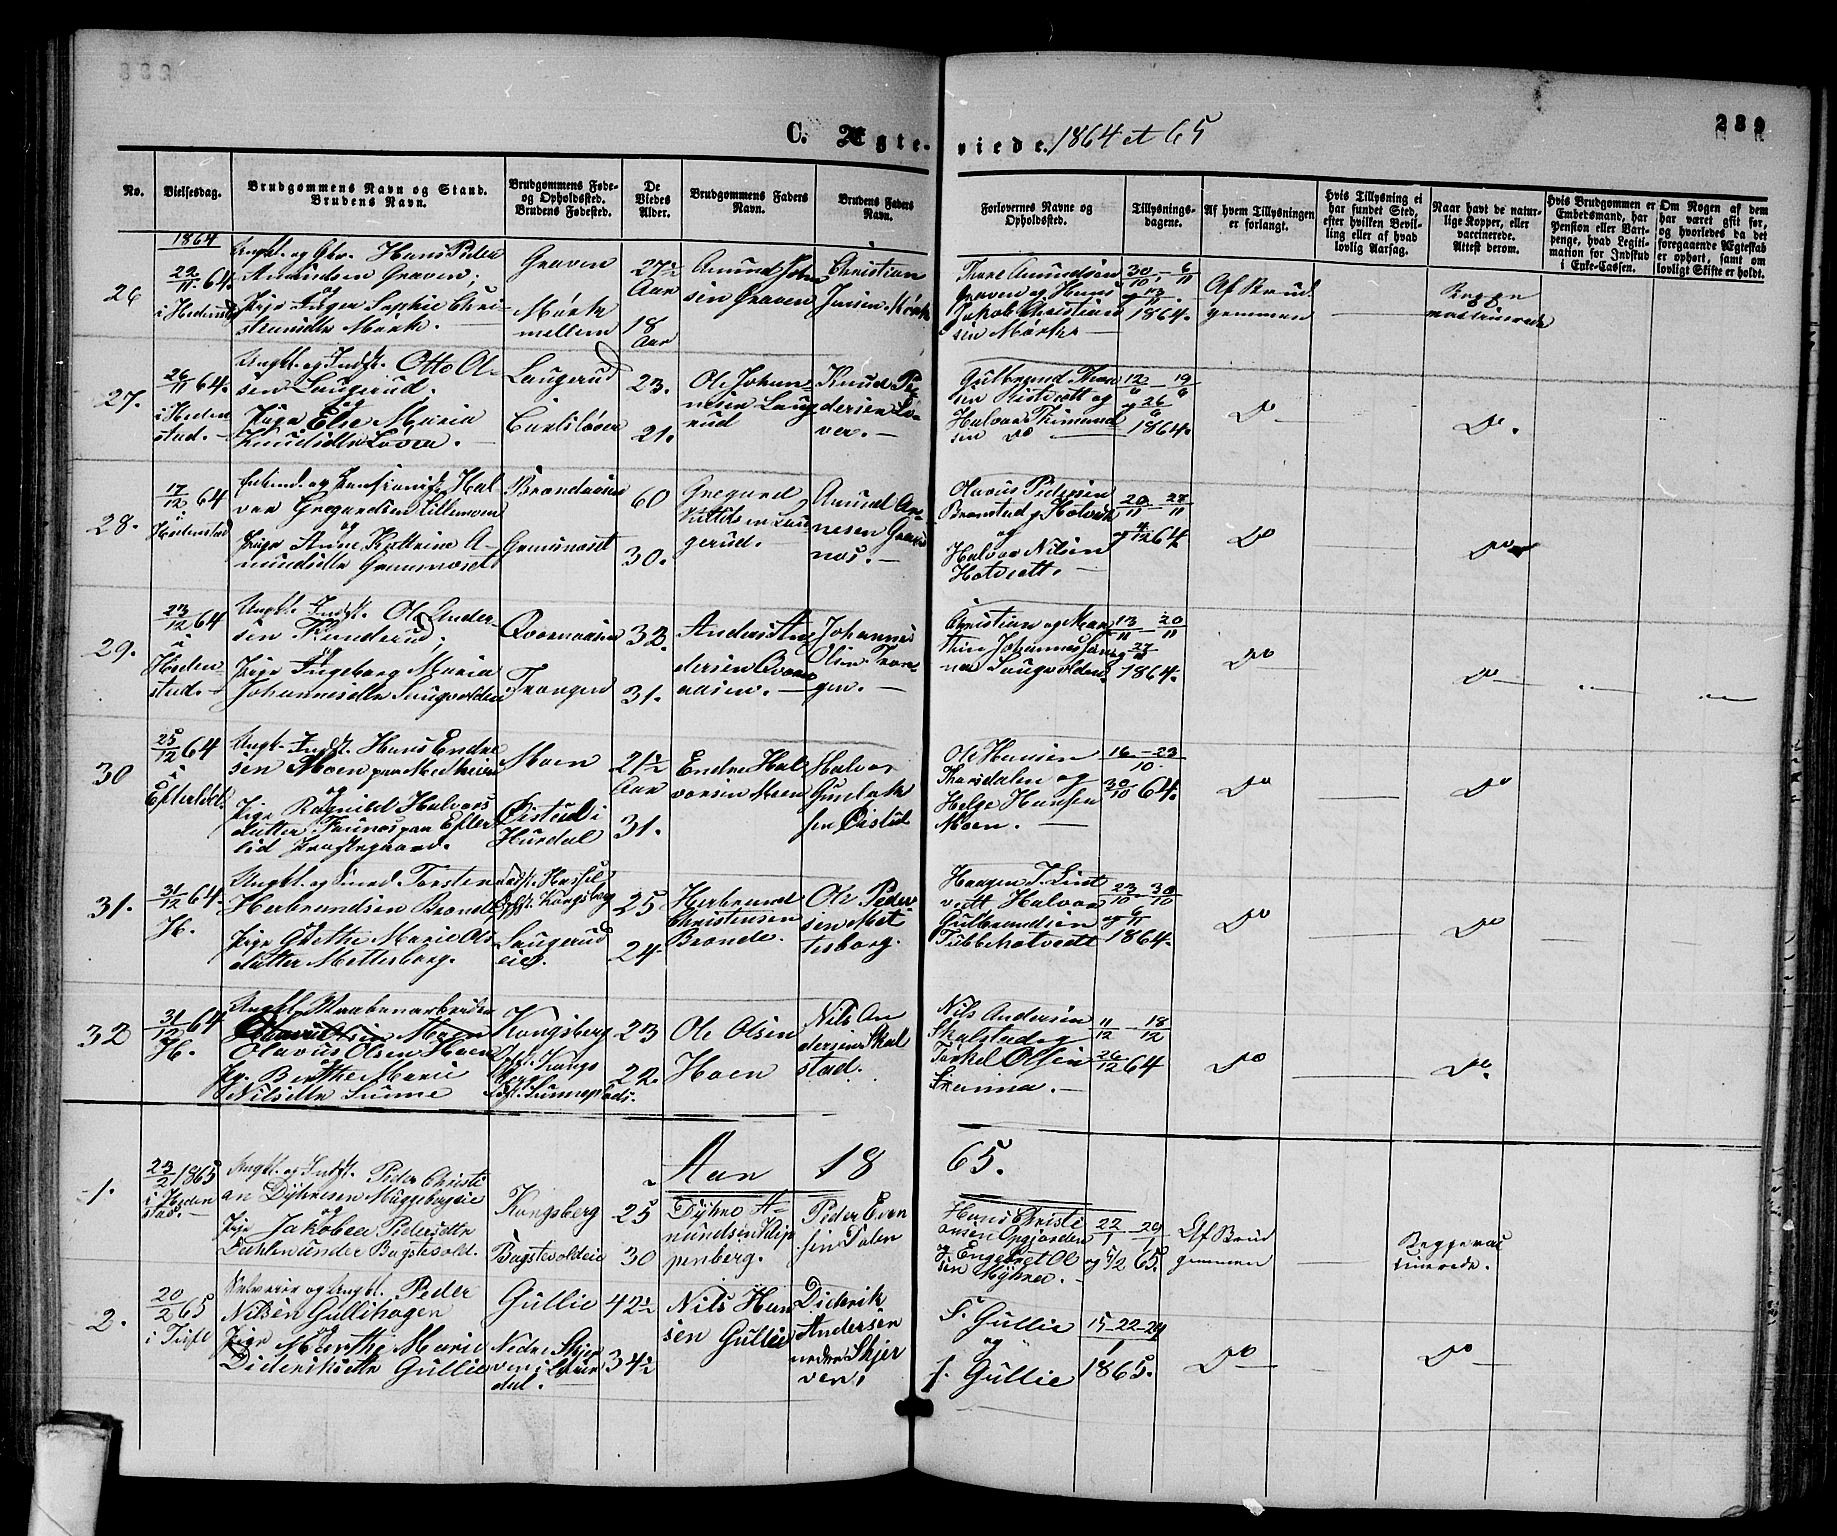 C. Ægte-
viede. 1864 et 65
239
No.
Vielsesdag.
Brudgommens Navn og Stand.
Brudens Navn.
Brudgommens Føde-
og Opholdssted.
Brudens Fødested.
De
Viedes
Alder.
Brudgommens Faders
Navn.
Brudens Faders
Navn.
Forlovernes Navne og
Opholdssted.
Tillysnings-
dagene.
Af hvem Tillysningen
er forlangt.
Hvis Tillysning ei
har fundet Sted,
efter hvilken Bevil-
ling eller af hvad
lovlig Aarsag.
Naar havt de natur-
lige Kopper, eller
vaccinerede.
Attest derom.
Hvis Brudgommen er
Embedsmand, har
Pension eller Vart-
penge, hvad Legiti-
mation for Indskud
i Enke-Cassen.
Om Nogen af dem
har været gift før,
og hvorledes da det
foregaaende Ægteskab
er ophørt, samt om
lovligt Skifte er holdt.
1864
26
22/11 64.
Hans Peder
Amundsen Graven;
og
Pige Inger Sophie Chri-
stensdtr Mørk.
Graven
Mørk
mellem
27½
Aar
18
Aar
Amund John
sen Graven
Christian
Jensen Mørk
Thore Amundsen
Graven og Hans
Jakob Christian
sen Mørk
30/10 - 6/11
og 13/11
1864.
Af Brud
gommen
Begge
vaccinerede
27.
26/11 64.
i Heden
stad.
Ungk. og Indst. Otto Ol-
sen Laugerud.
og
Pige Else Maria
Knudsdtr Lover.
Laugerud
Carlsløver
23.
21.
Ole Johan-
nesen Laug
rud
Knud Pe
dersen Lo-
ver.
Gulbrand Thor
sen og
Halvor
sen do
12/6 - 19/6
og 26/6
1864.
Do
Do.
28.
17/12 64
i
Hedenstad
Enkemd. og Hal
vor Gregardsen Lillemoen
og
Pige Anne Kathrine A-
mundsdtr Grennæset
60
30.
Gregard
Lau
gerud.
Amund Ar-
nesen Gren
næs.
Olavus Pedersen
Bronstad
og
Halvor Nilsen
Hotvedt.
20/11 - 27/11
og 4/12 64
Do
Do
29.
23/12 64
i
Heden
stad.
Ungk. Indst. Ole Ander-
sen Kunderud;
og
Pige Ingeborg Maria
Johannesdtr Laugvolden
Qvornaasen
Trangen
32.
31.
Anders An
dersen Qvorn
aasen.
Johannes
Olsen Tran
gen.
Christian og Mar
thin Johannessen
Laugvolden
13/11 - 20/11
og 27/11
1864.
Do
Do
30
25/12 64
i
Efteløt
Ungk. Indst. Hans Endre
sen Moen paa Metheien
og
Pige Ragnild Halvors
datter Faunæs paa Efte
lid Præstegaard.
Moen
Ørstud i
Hurdal
21½
Aar
31.
Endre Hal
vorsen Moen
Halvor
Gunlek
sen Ørstud
Ole Hansen
Thorsdalen og
Helge Hansen
Moen.
16 - 23/10
30/10 64.
Do
Do
31.
31/12 64.
H.
Ungk. og Smed. Torsten
Herbrandsen Bronde
Pige Grethe Marie Ols
datter Mettesborg.
Fødst. Hassel
Kongsberg
Laugerud
eie.
25
24.
Herbrand
Christensen
Bronde.
Ole Peder
sen Met
tesborg.
Haagen J. Lint
vett Halvor
Gulbrandsen
Tubbehotvedt
23/10 - 30/10
og 6/11
1864.
Do
Do
32
31/12 64
H.
Ungk. Vaabenarbeider
Olavus Olsen Hoen
Pg. Berthe Marie
Nilsdtr Sunne
Kongsberg
Kongs
berg
23
22.
Ole Olsen
Hoen
Nils An
dersen Skal
stad.
Nils Andersen
Skalstad og
Torkel Olsen
11/12 - 18/12
26/12 64
Do
Do.
Aar 18
65.
1.
23/2 1865
i Heden
stad.
Ungk. og Indst. Peder Christi
an Dyhresen Muggebergeie
og
Pige Jakobea Pedersdtr
Dahlen under Bagstevold.
Kongsberg
Bagstevoldeie
25
30
Dyhre A-
mundsen Klip
penberg.
Peder Even
sen Dalen
Hans Christi
ansen Opgjorden
og Engebret Ol
sen Myhra.
22/1 - 29/1
og 5/2 65.
Af Brud
gommen
Begge vac
cinerede.
2.
20/2 65
i Tufe
Selveier og Ungk. Peder
Nilsen Gullihagen
og
Pige Marthe Marie
Dideriksdtr Gullie
Gullie
Nedre Skjer
ven i
dal.
42½
34½
Nils Han
sen Gullie
Diderik
Andersen
nedre Skjer
ven.
F. Gullie
og
f. Gullie
15-22-29/1
1865.
Do
Do